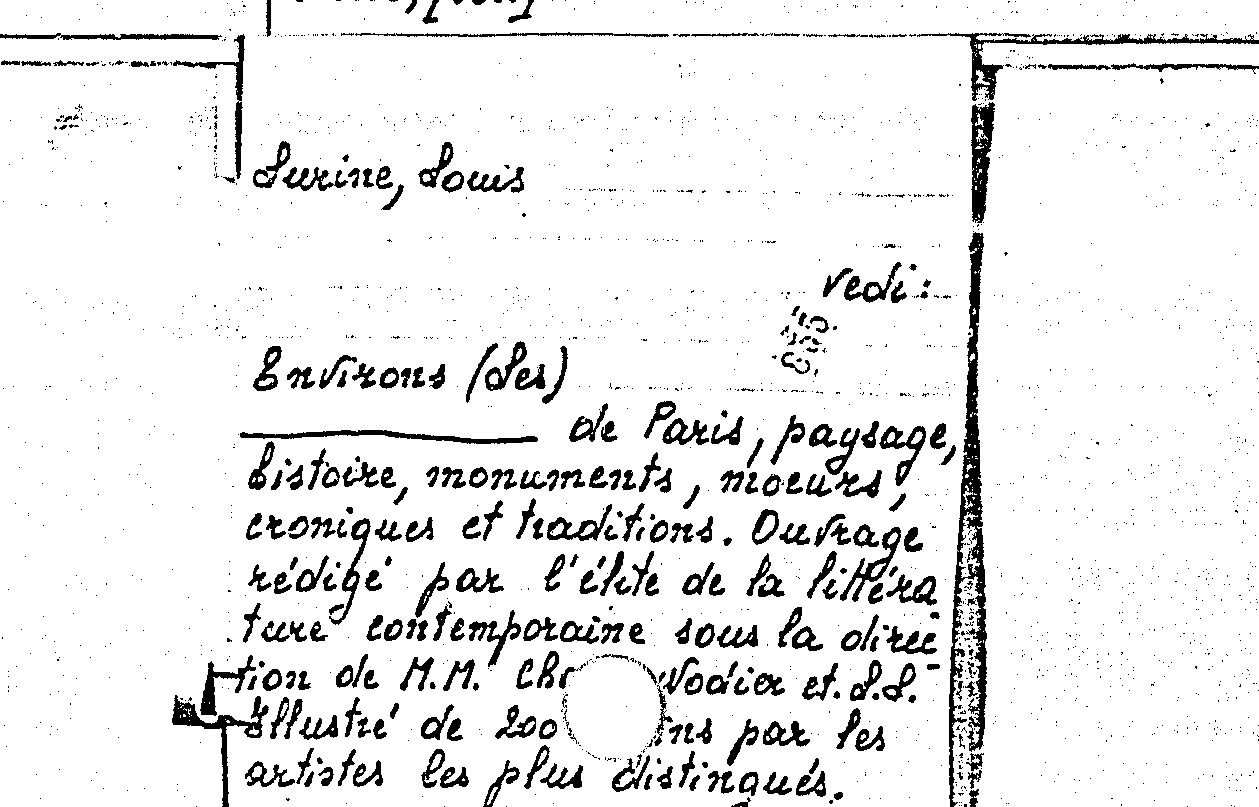 Lurine, Louis
vedi:
855
Environs (Les)
de Paris, paysage,
histoire, monuments, moeurs,
croniques et traditions. Ouvrage
rédigé par l'élite de la littéra
ture contemporaine sous la direc
tion de M.M. Ch Nodier et L.L.
Illustré de 200 ins par les
artistes les plus distingués.